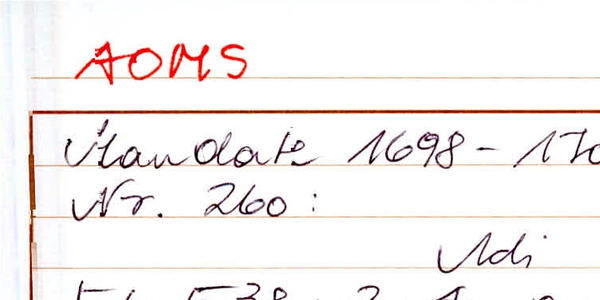 AOMS
Mandate 1698 - 170
Nr. 260 :
Adi